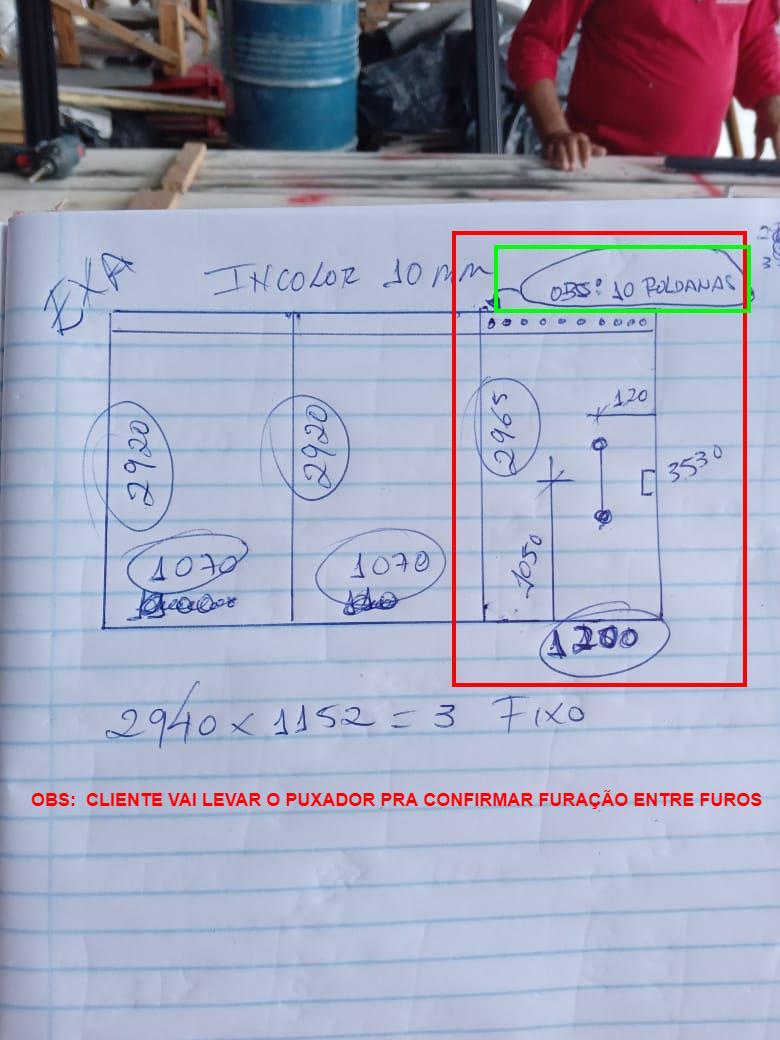 EXA
INCOLOR 10 MM
OBS: 10 ROLDANAS
2920
2920
2965
120
3530
1070
1070
1050
1200
2940 x 1152 = 3 FIXO
OBS: CLIENTE VAI LEVAR O PUXADOR PRA CONFIRMAR FURAÇÃO ENTRE FUROS